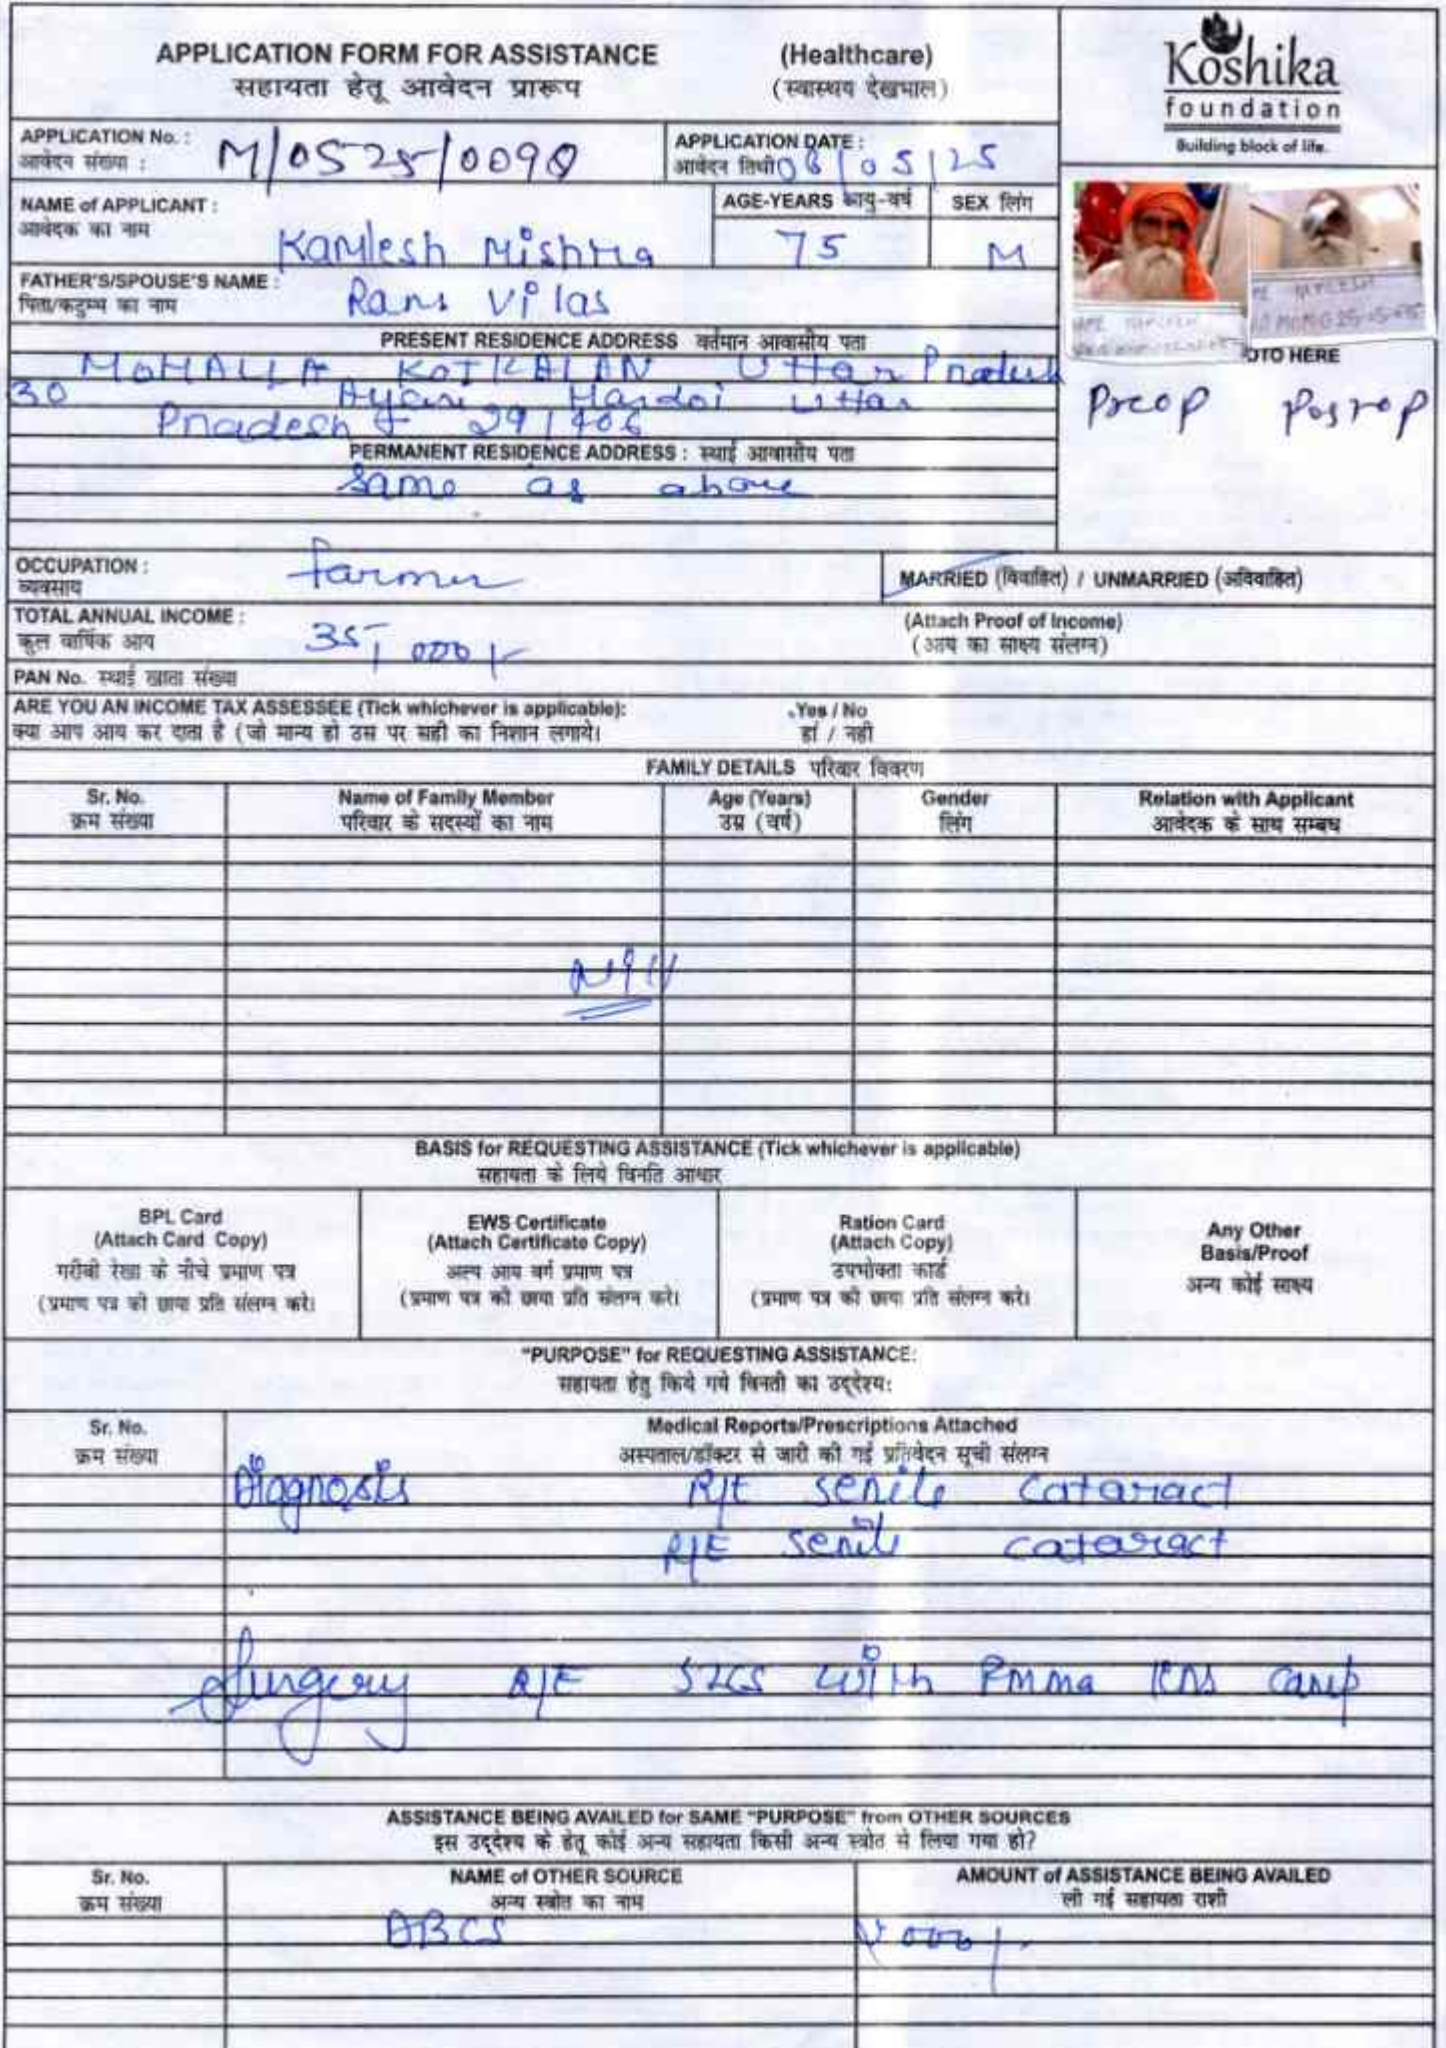 APPLICATION FORM FOR ASSISTANCE (Healthcare)
सहायता हेतू आवेदन प्रारूप (स्वास्थय देखभाल)
Koshika
foundation
Building block of life.
APPLICATION No. :
आवेदन संख्या : M/0525/0090
APPLICATION DATE :
आवेदन तिथी 08/05/25
NAME of APPLICANT :
आवेदक का नाम Kamlesh Mishra
AGE-YEARS आयु-वर्ष
75
SEX लिंग
M
FATHER'S/SPOUSE'S NAME :
पिता/कटुम्ब का नाम Ram Vilas
PRESENT RESIDENCE ADDRESS वर्तमान आवासीय पता
MOHALLA KOTKALAN Uttar Pradesh
30 Hardoi Uttar
Pradesh
PERMANENT RESIDENCE ADDRESS : स्थाई आवासीय पता
same as above
OTO HERE
Preop Postop
OCCUPATION :
व्यवसाय farmer
MARRIED (विवाहित) / UNMARRIED (अविवाहित)
TOTAL ANNUAL INCOME :
कुल वार्षिक आय 35,000/-
(Attach Proof of Income)
(आय का साक्ष्य संलग्न)
PAN No. स्थाई खाता संख्या
ARE YOU AN INCOME TAX ASSESSEE (Tick whichever is applicable): Yes / No
क्या आप आय कर दाता है (जो मान्य हो उस पर सही का निशान लगाये। हां / नही
FAMILY DETAILS परिवार विवरण
Sr. No. Name of Family Member Age (Years) Gender Relation with Applicant
क्रम संख्या परिवार के सदस्यों का नाम उम्र (वर्ष) लिंग आवेदक के साथ सम्बध
Nil
BASIS for REQUESTING ASSISTANCE (Tick whichever is applicable)
सहायता के लिये विनति आधार
BPL Card
(Attach Card Copy)
गरीबी रेखा के नीचे प्रमाण पत्र
(प्रमाण पत्र की छाया प्रति संलग्न करे।
EWS Certificate
(Attach Certificate Copy)
अल्प आय वर्ग प्रमाण पत्र
(प्रमाण पत्र की छाया प्रति संलग्न करे।
Ration Card
(Attach Copy)
उपभोक्ता कार्ड
(प्रमाण पत्र की छाया प्रति संलग्न करे।
Any Other
Basis/Proof
अन्य कोई साक्ष्य
"PURPOSE" for REQUESTING ASSISTANCE:
सहायता हेतु किये गये विनती का उद्देश्य:
Sr. No. Medical Reports/Prescriptions Attached
क्रम संख्या अस्पताल/डॉक्टर से जारी की गई प्रतिवेदन सूची संलग्न
Diagnosis R/E senile cataract
R/E senile cataract
Surgery R/E SICS with PMMA camp
ASSISTANCE BEING AVAILED for SAME "PURPOSE" from OTHER SOURCES
इस उद्देश्य के हेतू कोई अन्य सहायता किसी अन्य स्त्रोत से लिया गया हो?
Sr. No. NAME of OTHER SOURCE AMOUNT of ASSISTANCE BEING AVAILED
क्रम संख्या अन्य स्त्रोत का नाम ली गई सहायता राशी